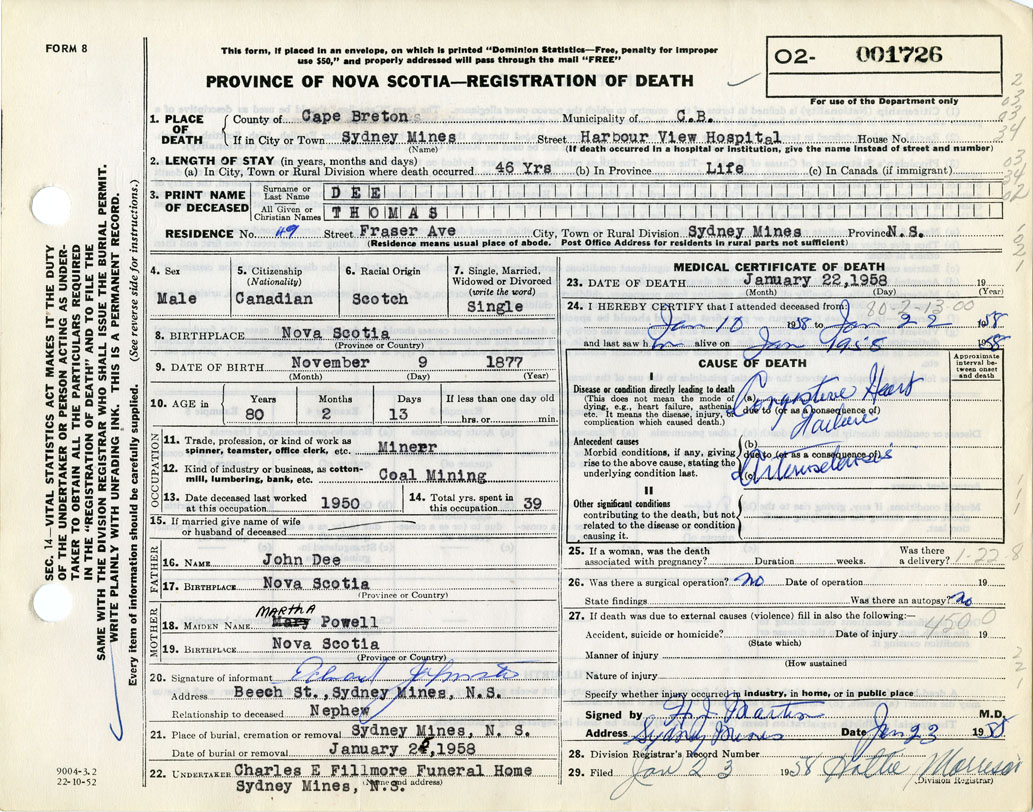 FORM 8
This form, if placed in an envelope, on which is printed "Dominion Statistics—Free, penalty for improper
use $50," and properly addressed will pass through the mail "FREE"
PROVINCE OF NOVA SCOTIA—REGISTRATION OF DEATH
O2- 001726
For use of the Department only
SEC. 14—VITAL STATISTICS ACT MAKES IT THE DUTY
OF THE UNDERTAKER OR PERSON ACTING AS UNDER-
TAKER TO OBTAIN ALL THE PARTICULARS REQUIRED
IN THE "REGISTRATION OF DEATH" AND TO FILE THE
SAME WITH THE DIVISION REGISTRAR WHO SHALL ISSUE THE BURIAL PERMIT.
WRITE PLAINLY WITH UNFADING INK. THIS IS A PERMANENT RECORD.
Every item of information should be carefully supplied. (See reverse side for instructions.)
1. PLACE OF DEATH
County of Cape Breton Municipality of C.B.
If in City or Town Sydney Mines Street Harbour View Hospital House No.
(Name) (If death occurred in a hospital or institution, give the name instead of street and number)
2. LENGTH OF STAY (in years, months and days)
(a) In City, Town or Rural Division where death occurred 46 Yrs (b) In Province Life (c) In Canada (if immigrant)
3. PRINT NAME OF DECEASED
Surname or Last Name DEE
All Given or Christian Names THOMAS
RESIDENCE No. 49 Street Fraser Ave City, Town or Rural Division Sydney Mines Province N.S.
(Residence means usual place of abode. Post Office Address for residents in rural parts not sufficient)
4. Sex
Male
5. Citizenship
(Nationality)
Canadian
6. Racial Origin
Scotch
7. Single, Married,
Widowed or Divorced
(write the word)
Single
8. BIRTHPLACE Nova Scotia
(Province or Country)
9. DATE OF BIRTH November 9 1877
(Month) (Day) (Year)
10. AGE in Years Months Days If less than one day old
80 2 13 hrs. or min.
OCCUPATION
11. Trade, profession, or kind of work as
spinner, teamster, office clerk, etc. Minerr
12. Kind of industry or business, as cotton-
mill, lumbering, bank, etc. Coal Mining
13. Date deceased last worked
at this occupation 1950
14. Total yrs. spent in
this occupation 39
15. If married give name of wife
or husband of deceased
FATHER
16. NAME John Dee
17. BIRTHPLACE Nova Scotia
(Province or Country)
MOTHER
MARTHA
18. MAIDEN NAME Mary Powell
19. BIRTHPLACE Nova Scotia
(Province or Country)
20. Signature of informant
Address Beech St., Sydney Mines, N.S.
Relationship to deceased Nephew
21. Place of burial, cremation or removal Sydney Mines, N. S.
Date of burial or removal January 2 ,1958
22. UNDERTAKER Charles E Fillmore Funeral Home
(Name and address)
Sydney Mines, N.S.
9004-3.2
22-10-52
MEDICAL CERTIFICATE OF DEATH
23. DATE OF DEATH January 22,1958 19
(Month) (Day) (Year)
24. I HEREBY CERTIFY that I attended deceased from 80-2-13-00
Jan 10 1958 to Jan 22 1958
and last saw him alive on Jan 1958 1958
CAUSE OF DEATH
Approximate
interval be-
tween onset
and death
I
Disease or condition directly leading to death
(This does not mean the mode of
dying, e.g., heart failure, asthenia,
etc. It means the disease, injury, or
complication which caused death.)
(a) Congestive Heart
due to (or as a consequence of)
Failure
Antecedent causes
Morbid conditions, if any, giving
rise to the above cause, stating the
underlying condition last.
(b)
due to (or as a consequence of)
Arteriosclerosis
(c)
II
Other significant conditions
contributing to the death, but not
related to the disease or condition
causing it.
25. If a woman, was the death
associated with pregnancy? Duration weeks. Was there
a delivery? 1-22-8
26. Was there a surgical operation? no Date of operation 19
State findings Was there an autopsy? No
27. If death was due to external causes (violence) fill in also the following:—
4500
Accident, suicide or homicide? Date of injury 19
(State which)
Manner of injury
(How sustained
Nature of injury
Specify whether injury occurred in industry, in home, or in public place
Signed by H. J. Martin M.D.
Address Sydney Mines Date Jan 23 1958
28. Division Registrar's Record Number
29. Filed Jan 23 1958 Hattie Morrison
(Division Registrar)